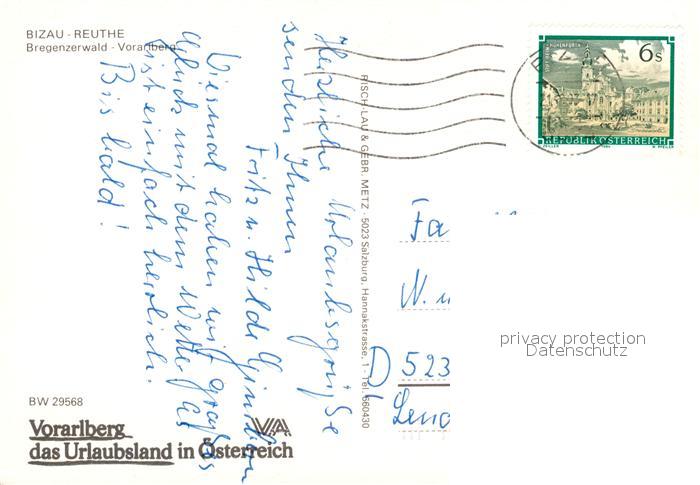 BIZAU - REUTHE
Bregenzerwald - Vorarlberg
Herzliche Urlaubsgrüße
senden Ihnen
Fritz u. Hilde
Diesmal haben wir großes
Glück mit dem Wetter. Es
ist einfach herrlich.
Bis bald!
RISCH-LAU & GEBR. METZ · 5023 Salzburg, Hannakstrasse 1 · Tel. 660430
6s
REPUBLIK ÖSTERREICH
Fa
N. u
D 523
privacy protection
Datenschutz
BW 29568
Vorarlberg
das Urlaubsland in Österreich